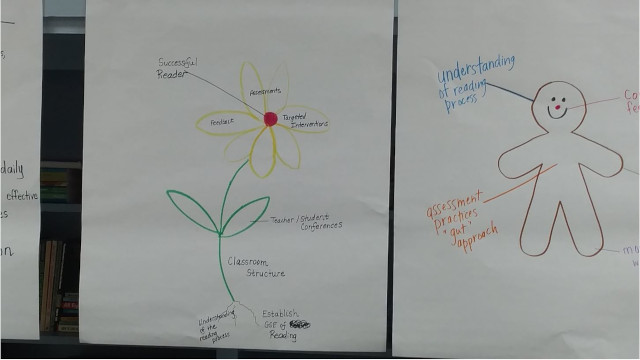 s,
daily
effective
es
on
Successful
Reader
Assessments
Feedback
Targeted
Interventions
Teacher/Student
Conferences
Classroom
Structure
Understanding
of the
reading
process
Establish
GSE of
Reading
understanding
of reading
process
Co
fe
assessment
practices
gut
approach
mo
w